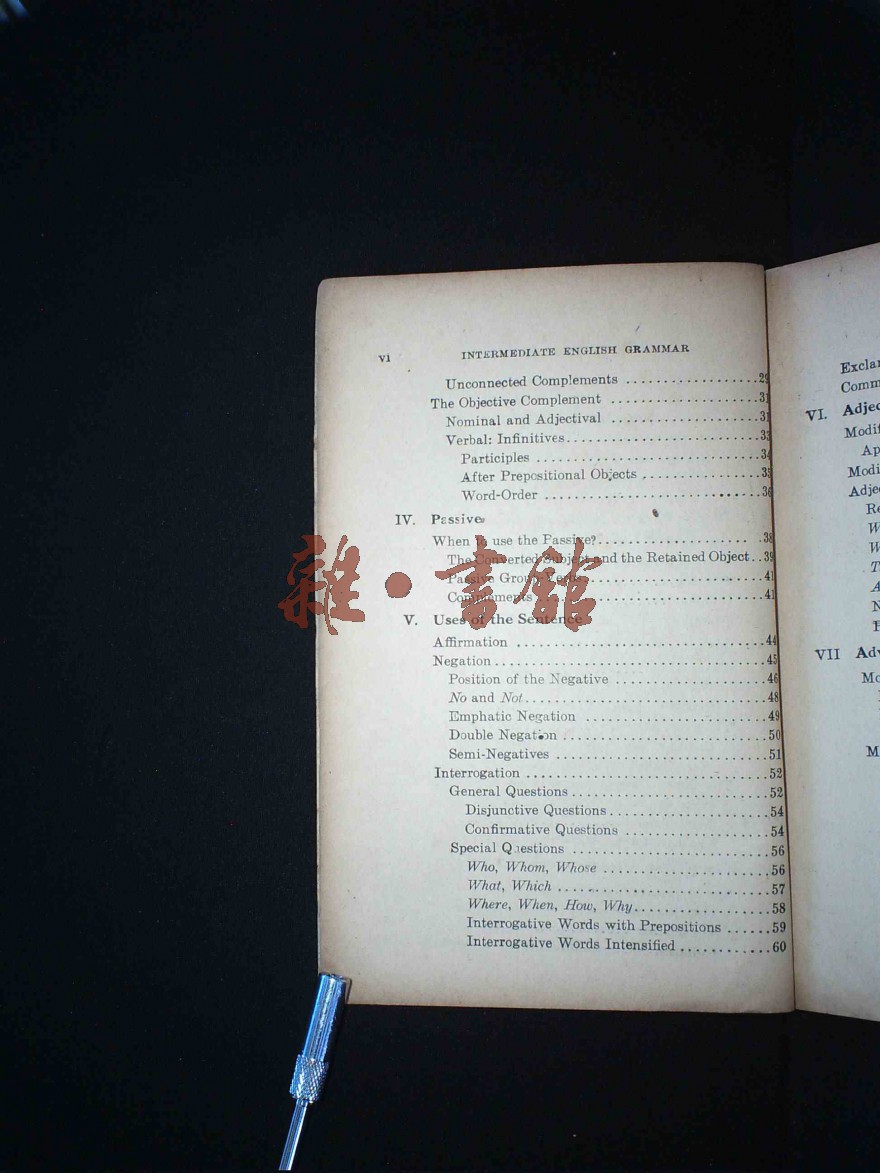 vi INTERMEDIATE ENGLISH GRAMMAR
Unconnected Complements ..................29
The Objective Complement ....................31
Nominal and Adjectival ....................31
Verbal: Infinitives..........................33
Participles ..............................34
After Prepositional Objects ................35
Word-Order .............................36
IV. Passive
When to use the Passive?.................... 38
The Converted Subject and the Retained Object..39
Passive Group-Verbs.........................41
Complements..............................41
V. Uses of the Sentence
Affirmation .................................44
Negation....................................45
Position of the Negative ....................46
No and Not................................48
Emphatic Negation ........................49
Double Negation ...........................50
Semi-Negatives ............................51
Interrogation ................................52
General Questions..........................52
Disjunctive Questions.....................54
Confirmative Questions ...................54
Special Questions ..........................56
Who, Whom, Whose ......................56
What, Which ............................57
Where, When, How, Why..................58
Interrogative Words with Prepositions ......59
Interrogative Words Intensified ............60
雜·書館
VI.
VII